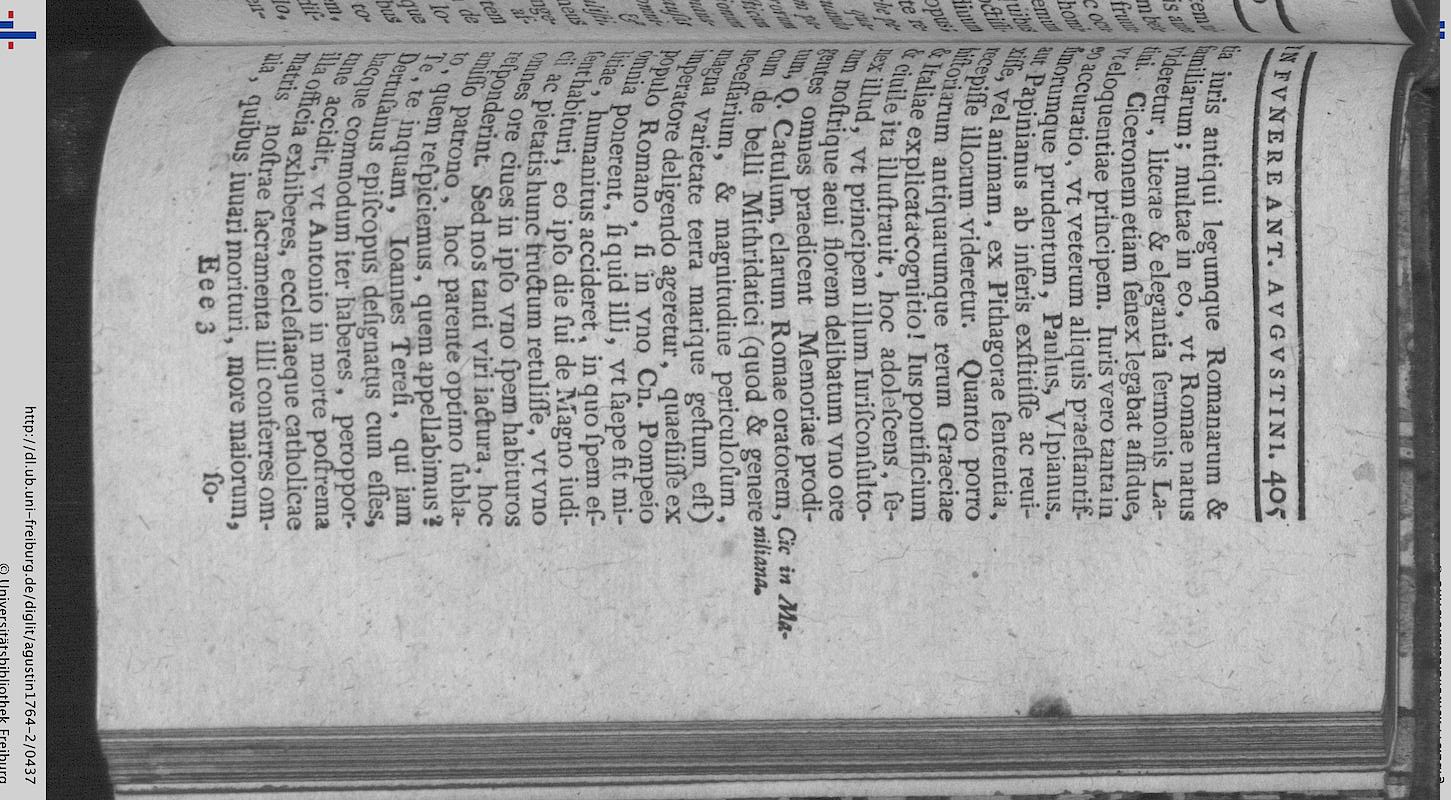 IN FVNERE ANT. AVGVSTINI. 405
tia iuris antiqui legumque Romanarum &
familiarum; multae in eo, vt Romae natus
videretur, literae & elegantia sermonis La-
tini. Ciceronem etiam senex legabat assidue,
vt eloquentiae principem. Iuris vero tanta in
eo accuratio, vt veterum aliquis praestantiſ-
simorumque prudentum, Paulus, Vlpianus.
aut Papinianus ab inferis exſtitiſſe ac reui-
xiſſe, vel animam, ex Pithagorae ſententia,
recepiſſe illorum videretur. Quanto porro
hiſtoriarum antiquarumque rerum Graeciae
& Italiae explicata cognitio! Ius pontificium
& ciuile ita illuſtrauit, hoc adoleſcens, ſe-
nex illud, vt principem illum Iuriſconſulto-
rum noſtrique aeui florem delibatum vno ore
gentes omnes praedicent Memoriae prodi-
tum, Q. Catulum, clarum Romae oratorem, Cic in Ma-
cum de belli Mithridatici (quod & genere niliana.
neceſſarium, & magnitudine periculoſum,
magna varietate terra marique geſtum eſt)
imperatore deligendo ageretur, quaeſiiſſe ex
populo Romano, ſi in vno Cn. Pompeio
omnia ponerent, ſi quid illi, vt ſaepe fit mi-
litiae, humanitus accideret, in quo ſpem eſ-
ſent habituri, eo ipſo die ſui de Magno iudi-
cii ac pietatis hunc fructum retuliſſe, vt vno
omnes ore ciues in ipſo vno ſpem habituros
reſponderint. Sed nos tanti viri iactura, hoc
amiſſo patrono, hoc parente optimo ſubla-
to, quem reſpiciemus, quem appellabimus?
Te, te inquam, Ioannes Tereſi, qui iam
Dertuſanus epiſcopus deſignatus cum eſſes,
hacque commodum iter haberes, peroppor-
tune accidit, vt Antonio in morte poſtrema
illa officia exhiberes, eccleſiaeque catholicae
matris noſtrae ſacramenta illi conferres om-
nia, quibus iuuari morituri, more maiorum,
Eee 3 ſo-
http://dl.ub.uni-freiburg.de/diglit/agustin1764-2/0437
© Universitätsbibliothek Freiburg